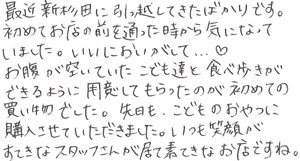 最近新杉田に引っ越してきたばかりです。
初めてお店の前を通った時から気になって
いました。いいにおいがして…♡
お腹が空いていたこども達と食べ歩きが
できるように用意してもらったのが初めての
買い物でした。先日も、こどものおやつに
購入させていただきました。いつも笑顔が
すてきなスタッフさんが居て素てきなお店ですね。